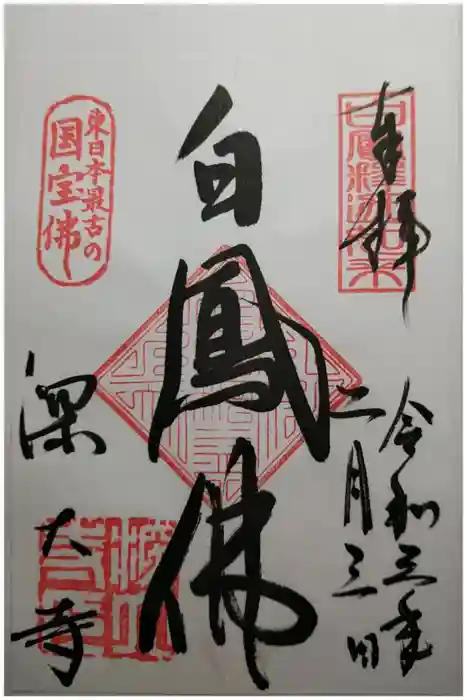 奉拝
白鳳釈迦如来
令和三年
二月三日
白鳳佛
東日本最古の
国宝佛
深大寺
深大寺